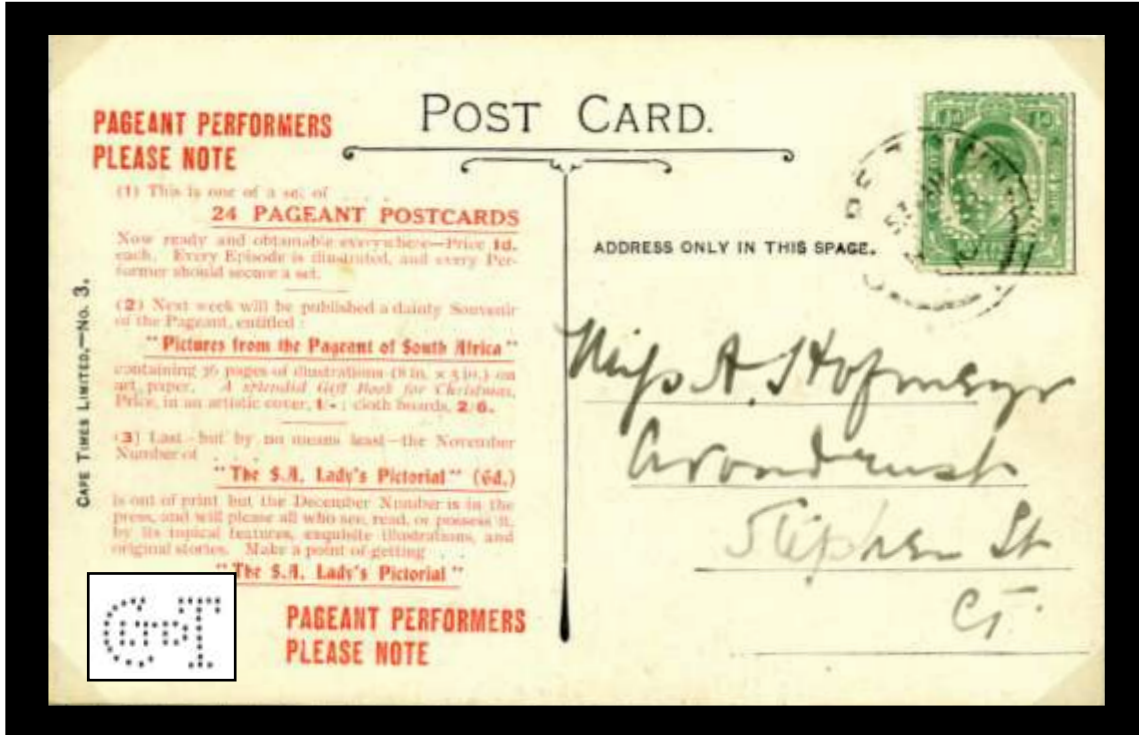 POST CARD.
PAGEANT PERFORMERS
PLEASE NOTE
(1) This is one of a set of . . . .
24 PAGEANT POSTCARDS
Now ready and obtainable everywhere—Price 1d.
each. Every Episode is illustrated, and every Per-
former should secure a set.
(2) Next week will be published a dainty Souvenir
of the Pageant, entitled :
"Pictures from the Pageant of South Africa"
containing 36 pages of illustrations (8 in. × 5 in.) on
art paper. A splendid Gift Book for Christmas,
Price, in an artistic cover, 1/- ; cloth boards, 2/6.
(3) Last—but by no means least—the November
Number of . . . .
"The S.A. Lady's Pictorial" (6d.)
is out of print but the December Number is in the
press, and will please all who see, read, or possess it,
by its topical features, exquisite illustrations, and
original stories. Make a point of getting . .
"The S.A. Lady's Pictorial"
PAGEANT PERFORMERS
PLEASE NOTE
CAPE TIMES LIMITED.—No. 3.
ADDRESS ONLY IN THIS SPACE.
Miss A. Hofmeyr
Avondrust
Stephen St
CT.